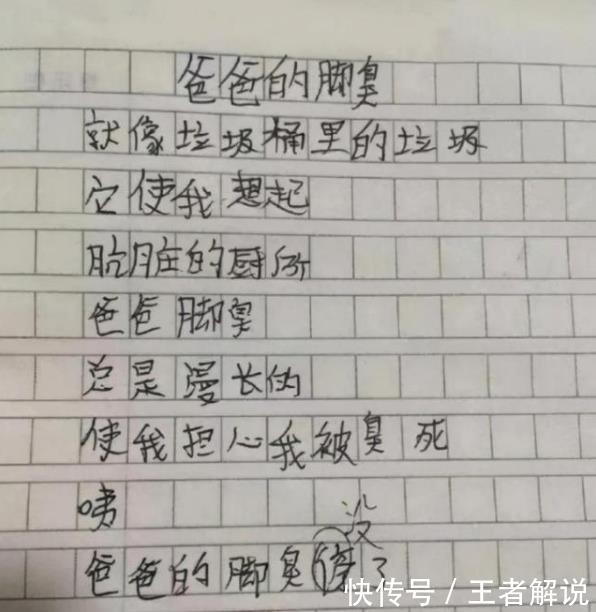 爸爸的脚臭
就像垃圾桶里的垃圾
它使我想起
肮脏的厨所
爸爸脚臭
总是漫长的
使我担心我被臭死
咦
没
爸爸的脚臭了
快传号 / 王者解说